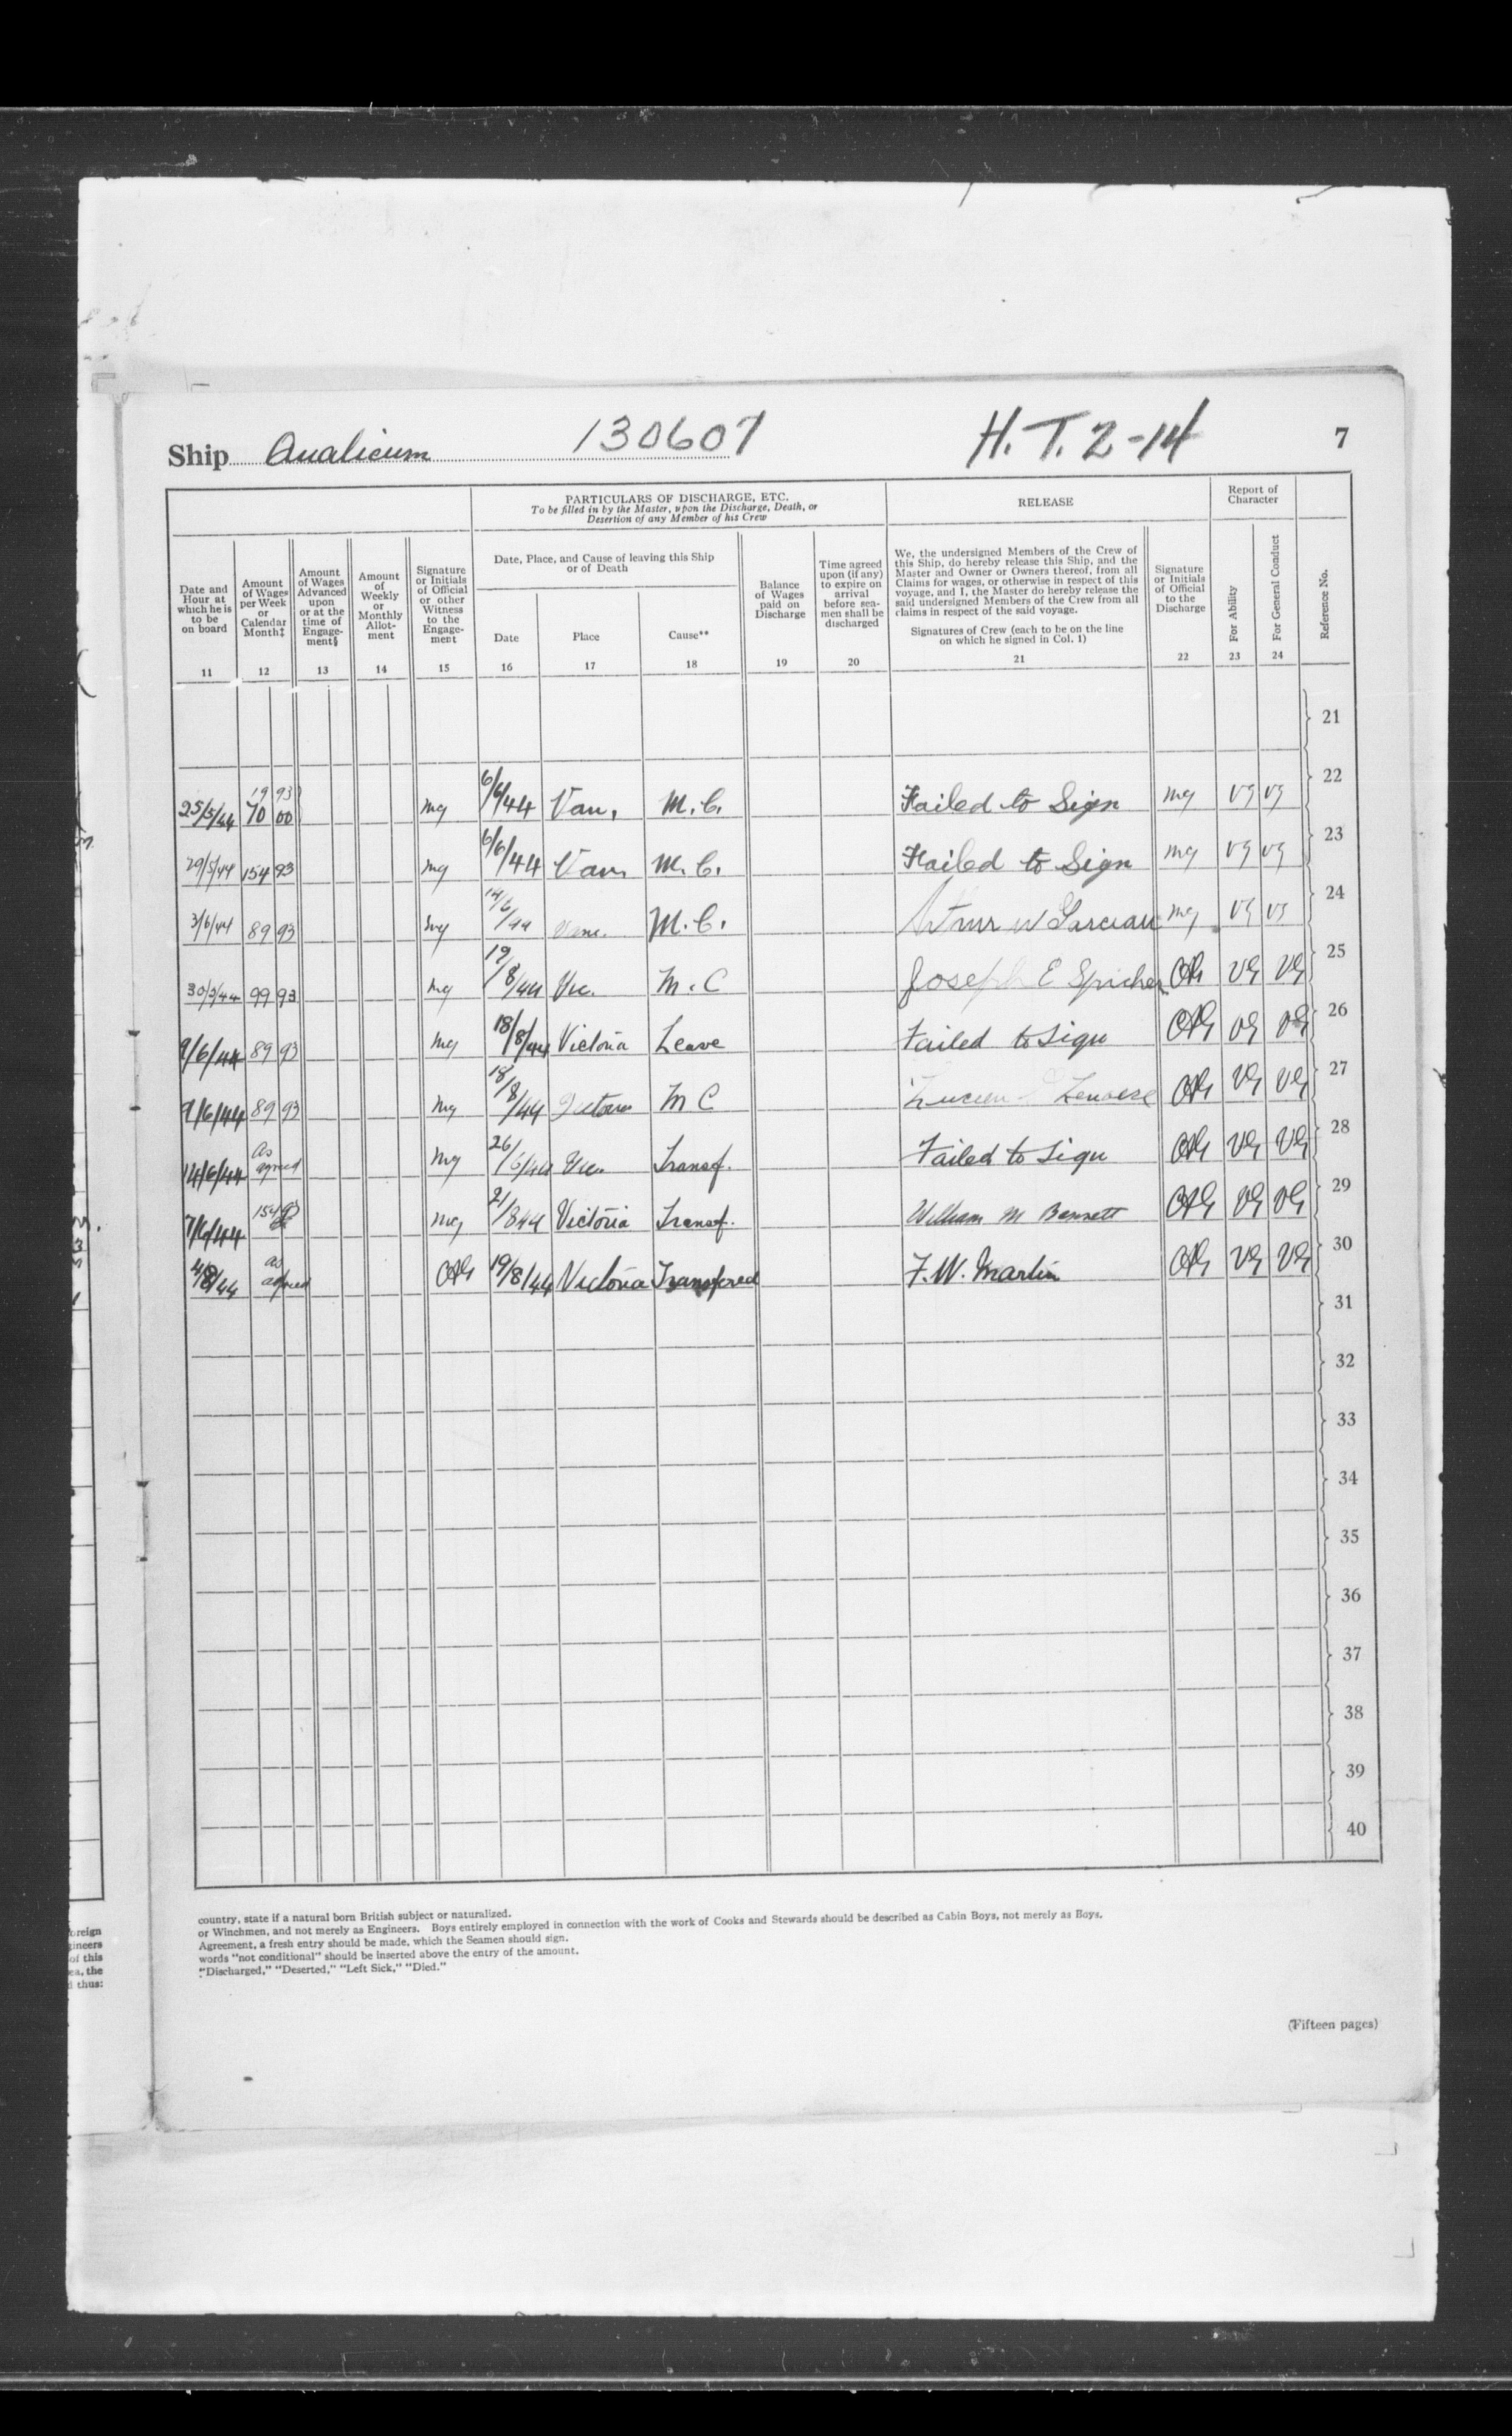 Ship Qualicum 130607 H.T. 2-14 7
PARTICULARS OF DISCHARGE, ETC.
To be filled in by the Master, upon the Discharge, Death, or
Desertion of any Member of his Crew
RELEASE
Report of
Character
Date and
Hour at
which he is
to be
on board
11
Amount
of Wages
per Week
or
Calendar
Month‡
12
Amount
of Wages
Advanced
upon
or at the
time of
Engage-
ment§
13
Amount
of
Weekly
or
Monthly
Allot-
ment
14
Signature
or Initials
of Official
or other
Witness
to the
Engage-
ment
15
Date, Place, and Cause of leaving this Ship
or of Death
Date
16
Place
17
Cause**
18
Balance
of Wages
paid on
Discharge
19
Time agreed
upon (if any)
to expire on
arrival
before sea-
men shall be
discharged
20
We, the undersigned Members of the Crew of
this Ship, do hereby release this Ship, and the
Master and Owner or Owners thereof, from all
Claims for wages, or otherwise in respect of this
voyage, and I, the Master do hereby release the
said undersigned Members of the Crew from all
claims in respect of the said voyage.
Signatures of Crew (each to be on the line
on which he signed in Col. 1)
21
Signature
or Initials
of Official
to the
Discharge
22
For Ability
23
For General Conduct
24
Reference No.
21
19 93
25/5/44 70 00 mg 6/6/44 Van. M.C. Failed to Sign mg VG VG 22
29/5/44 154 93 mg 6/6/44 Van. M.C. Failed to Sign mg VG VG 23
3/6/44 89 93 mg 14/6/44 Vanc. M.C. W mg VG VG 24
30/5/44 99 93 mg 19/8/44 Vic. M.C Joseph E VG VG 25
9/6/44 89 93 mg 18/8/44 Victoria Leave Failed to Sign VG VG 26
9/6/44 89 93 mg 18/8/44 Victoria M C Lucien VG VG 27
14/6/44 as agreed mg 26/6/44 Vic. Transf. Failed to Sign VG VG 28
7/6/44 154 93 mg 21/8/44 Victoria Transf. William M Bennett VG VG 29
4/8/44 as agreed 19/8/44 Victoria Transfered F.W. Martin VG VG 30
31
32
33
34
35
36
37
38
39
40
country, state if a natural born British subject or naturalized.
or Winchmen, and not merely as Engineers. Boys entirely employed in connection with the work of Cooks and Stewards should be described as Cabin Boys, not merely as Boys.
Agreement, a fresh entry should be made, which the Seamen should sign.
words "not conditional" should be inserted above the entry of the amount.
"Discharged," "Deserted," "Left Sick," "Died."
(Fifteen pages)
oreign
gineers
of this
ea, the
d thus: